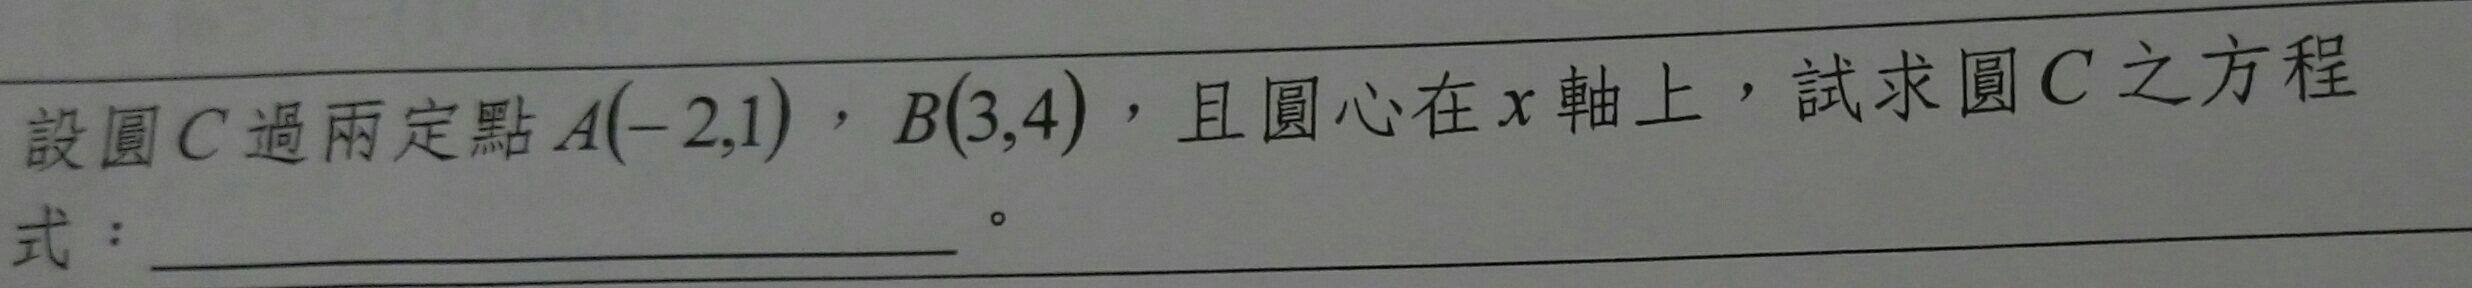 設圓C過兩定點A(-2,1)，B(3,4)，且圓心在x軸上，試求圓C之方程
式：＿＿＿＿＿＿＿＿＿＿。